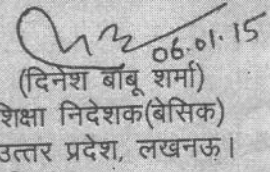 06.01.15
(दिनेश बाबू शर्मा)
शिक्षा निदेशक(बेसिक)
उत्तर प्रदेश, लखनऊ।